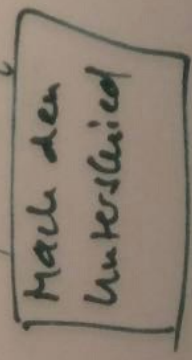 Mach den
Unterschied